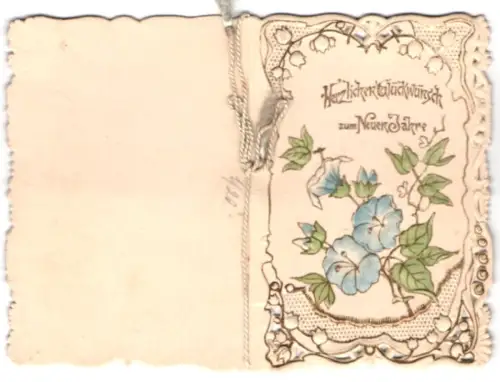 Herzlichen Glückwunsch
zum Neuen Jahre